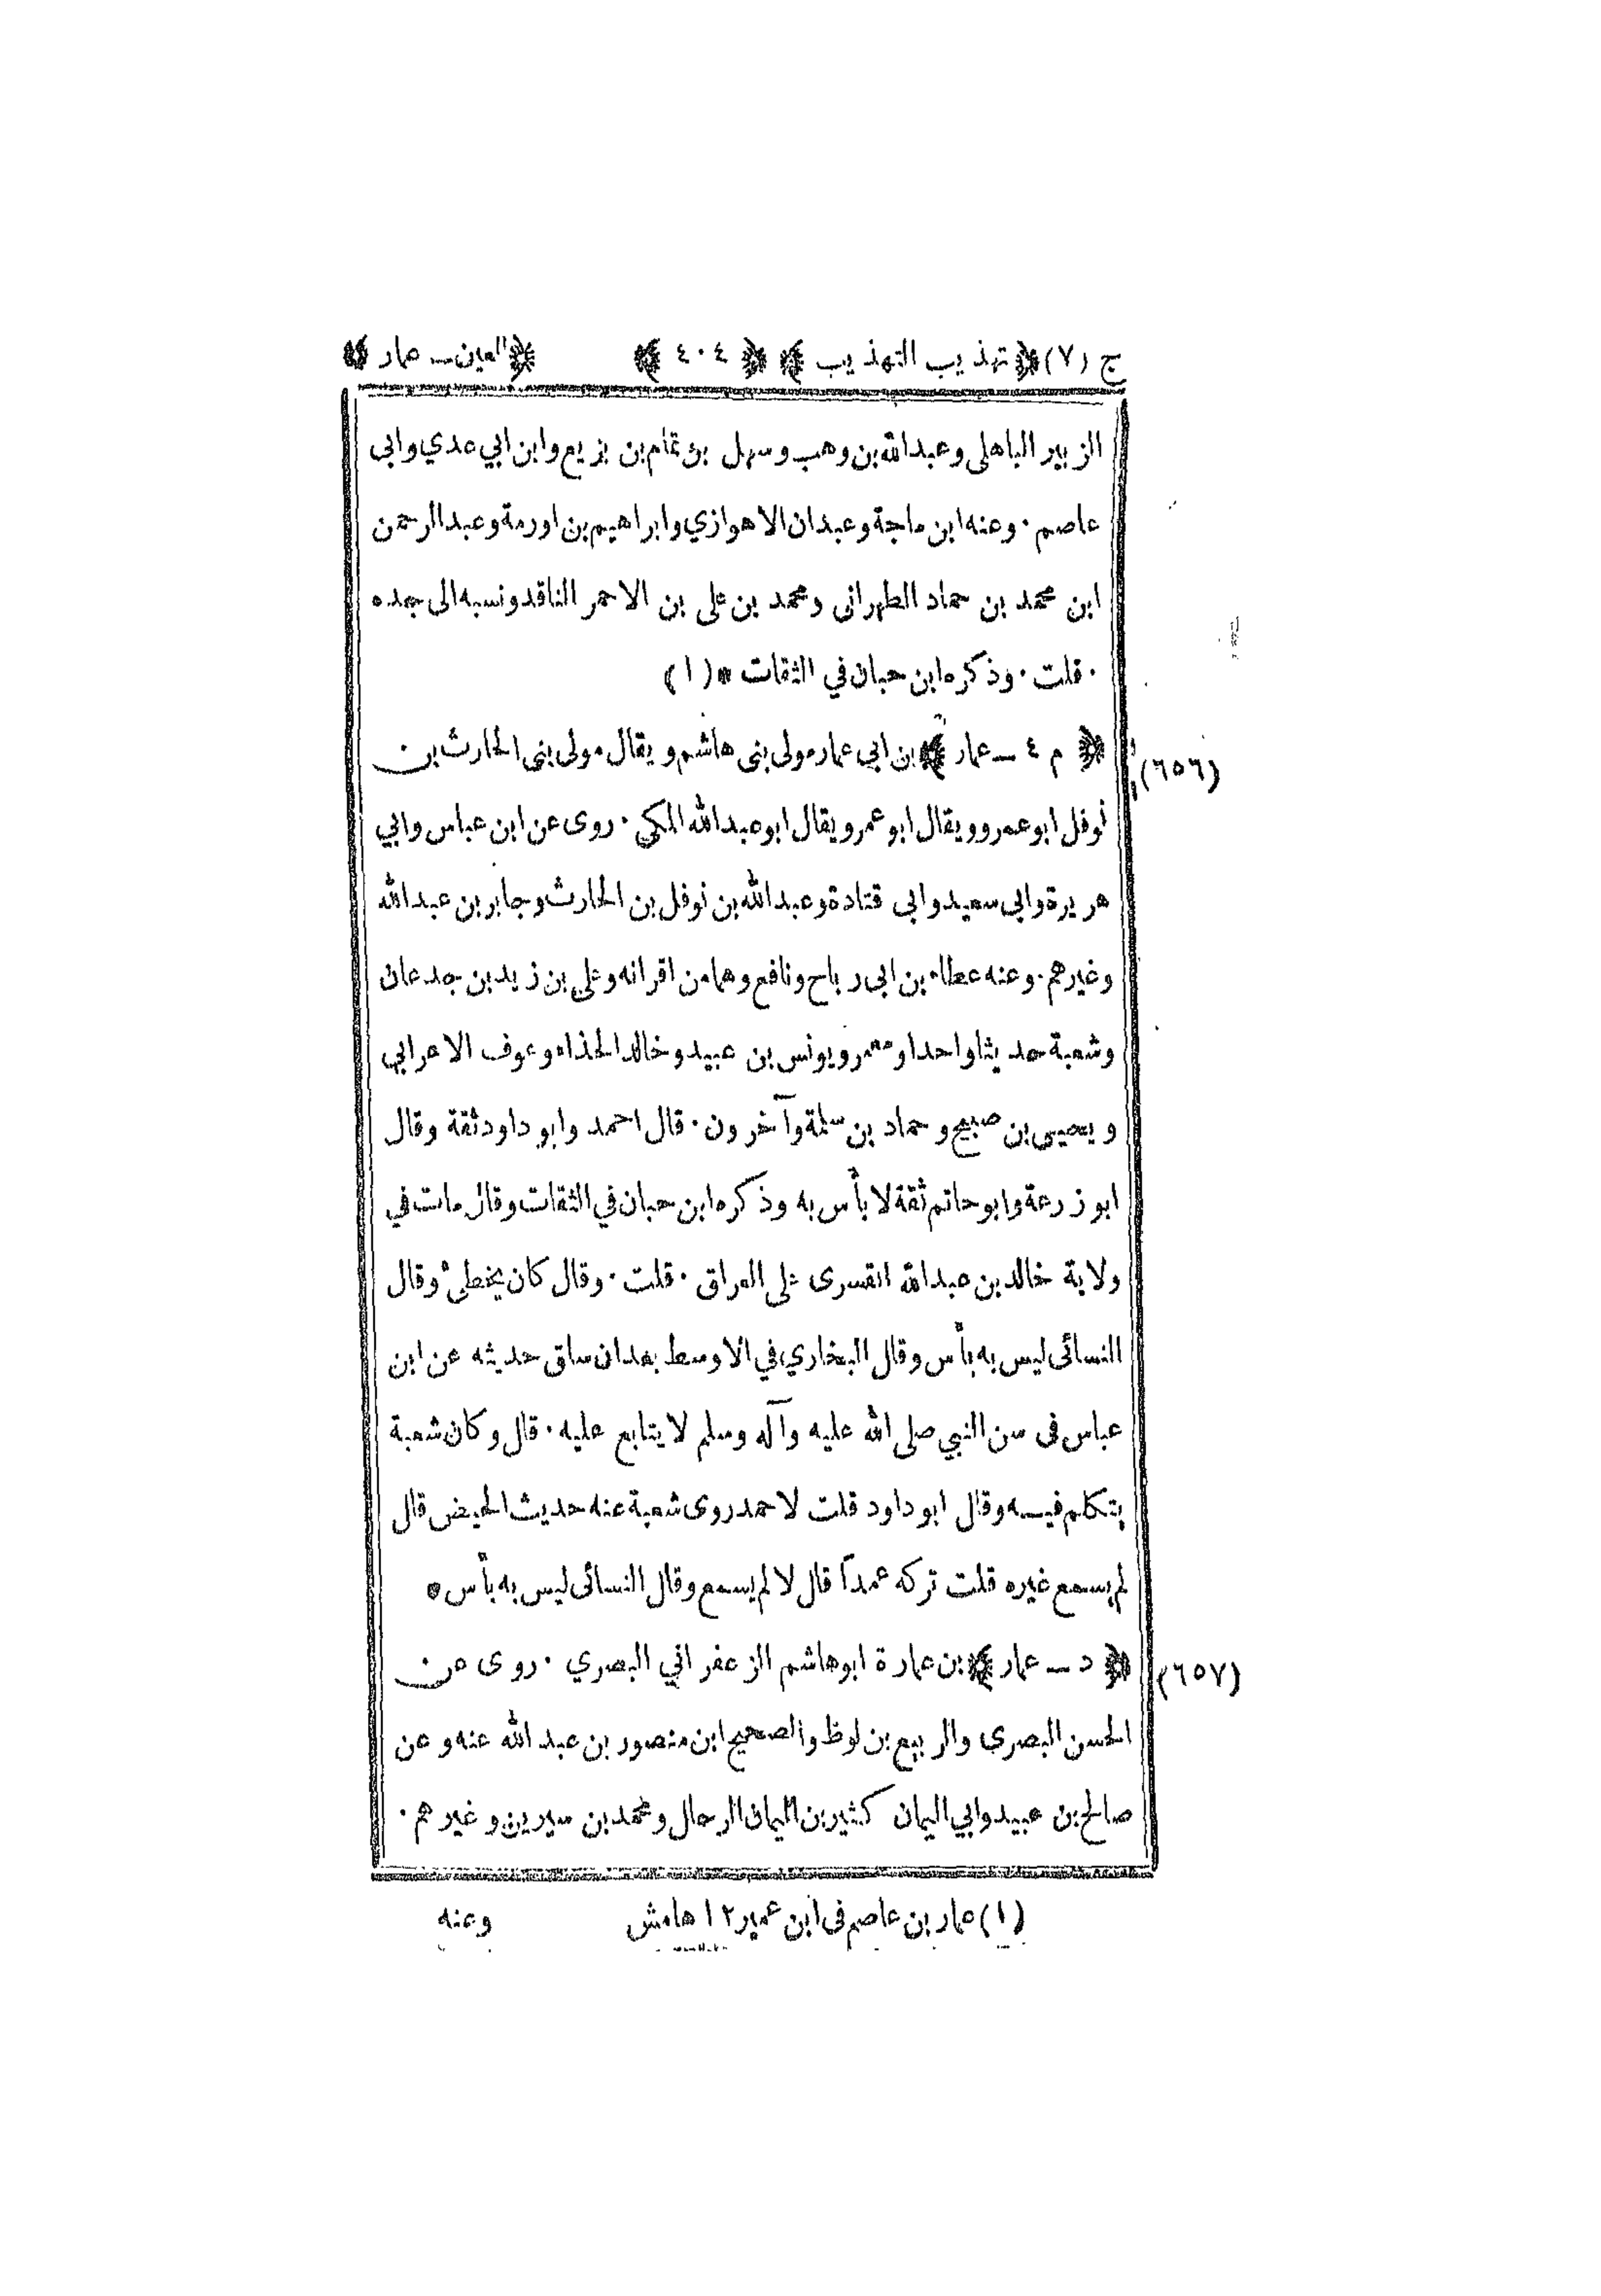 ج (٧) ﴿ تهذيب التهذيب ﴾ ﴿ ٤٠٤ ﴾ ﴿ العين ـ عمار ﴾
الزبير الباهلى وعبدالله بن وهب وسهل بن تمام بن بزيع وابن ابي عدي وابى
عاصم · وعنه ابن ماجة وعبدان الاهوازي وابراهيم بن اورمة وعبدالرحمن
ابن محمد بن حماد الطهرانى ومحمد بن على بن الاحمر الناقد ونسبه الى جده
· قلت · وذكره ابن حبان في الثقات * (١)
(٦٥٦) ﴿ م ٤ ـ عمار ﴾ بن ابي عمار مولى بنى هاشم ويقال مولى بنى الحارث بن
نوفل ابو عمرو ويقال ابو عمر ويقال ابو عبدالله المكى · روى عن ابن عباس وابي
هريرة وابى سعيد وابى قتادة وعبدالله بن نوفل بن الحارث وجابر بن عبدالله
وغيرهم · وعنه عطاء بن ابى رباح ونافع وهما من اقرانه وعلى بن زيد بن جدعان
وشعبة حديثا واحدا ومعمر ويونس بن عبيد وخالد الحذاء وعوف الاعرابي
ويحيى بن صبيح وحماد بن سلمة وآخرون · قال احمد وابو داود ثقة وقال
ابو زرعة وابو حاتم ثقة لا بأس به وذكره ابن حبان في الثقات وقال مات في
ولاية خالد بن عبدالله القسرى على العراق · قلت · وقال كان يخطئ وقال
النسائى ليس به بأس وقال البخاري في الاوسط بعد ان ساق حديثه عن ابن
عباس فى سن النبي صلى الله عليه وآله وسلم لا يتابع عليه · قال وكان شعبة
يتكلم فيه وقال ابو داود قلت لاحمد روى شعبة عنه حديث الحيض قال
لم يسمع غيره قلت تركه عمداً قال لا لم يسمع وقال النسائى ليس به بأس *
(٦٥٧) ﴿ د ـ عمار ﴾ بن عمارة ابو هاشم الزعفراني البصري · روى عن
الحسن البصرى والربيع بن لوط والصحيح ابن منصور بن عبد الله عنه وعن
صالح بن عبيد وابي اليمان كثير بن اليمان الرحال ومحمد بن سيرين وغيرهم ·
(١) عمار بن عاصم فى ابن عمير ١٢ هامش
وعنه